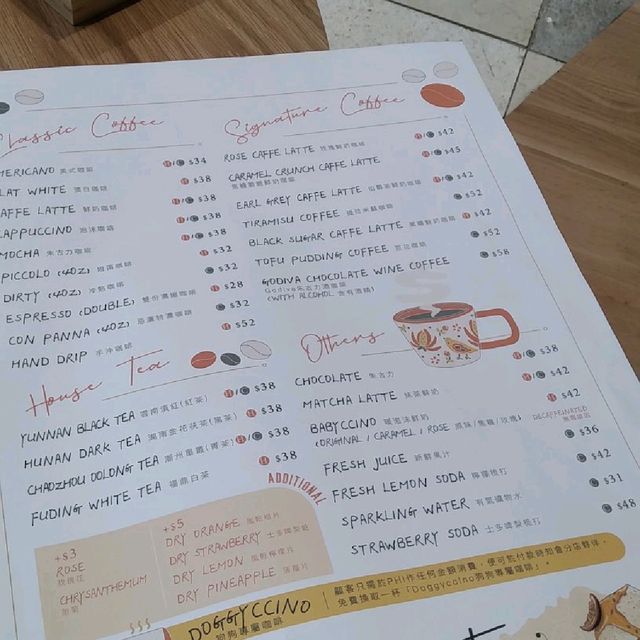 Classic Coffee
MERICANO 美式咖啡 $34
LAT WHITE 澳白咖啡 $38
AFFE LATTE 鮮奶咖啡 $38
APPUCCINO 泡沫咖啡 $38
MOCHA 朱古力咖啡 $38
PICCOLO (4OZ) $32
DIRTY (4OZ) $32
ESPRESSO (DOUBLE) 雙份濃縮咖啡 $28
CON PANNA (4OZ) $32
HAND DRIP 手沖咖啡 $52
Signature Coffee
ROSE CAFFE LATTE 玫瑰鮮奶咖啡 $42
CARAMEL CRUNCH CAFFE LATTE $45
EARL GREY CAFFE LATTE 伯爵茶鮮奶咖啡 $42
TIRAMISU COFFEE 提拉米蘇咖啡 $52
BLACK SUGAR CAFFE LATTE 黑糖鮮奶咖啡 $42
TOFU PUDDING COFFEE 豆花咖啡 $52
GODIVA CHOCOLATE WINE COFFEE $58
Godiva朱古力酒咖啡
(WITH ALCOHOL 含有酒精)
House Tea
YUNNAN BLACK TEA 雲南滇紅(紅茶) $38
HUNAN DARK TEA 湖南金花茯茶(黑茶) $38
CHAOZHOU OOLONG TEA 潮州單叢(青茶) $38
FUDING WHITE TEA 福鼎白茶 $38
Others
CHOCOLATE 朱古力 $38
MATCHA LATTE 抹茶鮮奶 $42
BABYCCINO 暖泡沫鮮奶 $42
(ORIGINAL / CARAMEL / ROSE 原味/焦糖/玫瑰) DECAFFEINATED
FRESH JUICE 新鮮果汁 $36
FRESH LEMON SODA 檸檬梳打 $42
SPARKLING WATER 有氣礦物水 $31
STRAWBERRY SODA 士多啤梨梳打 $48
ADDITIONAL
+$3
ROSE
玫瑰花
CHRYSANTHEMUM
胎菊
+$5
DRY ORANGE
DRY STRAWBERRY
DRY LEMON
DRY PINEAPPLE
DOGGYCCINO
狗狗專屬咖啡
顧客只需於PHI作任何金額消費，便可於付款時知會分店夥伴，
免費換取一杯「Doggyccino狗狗專屬咖啡」。